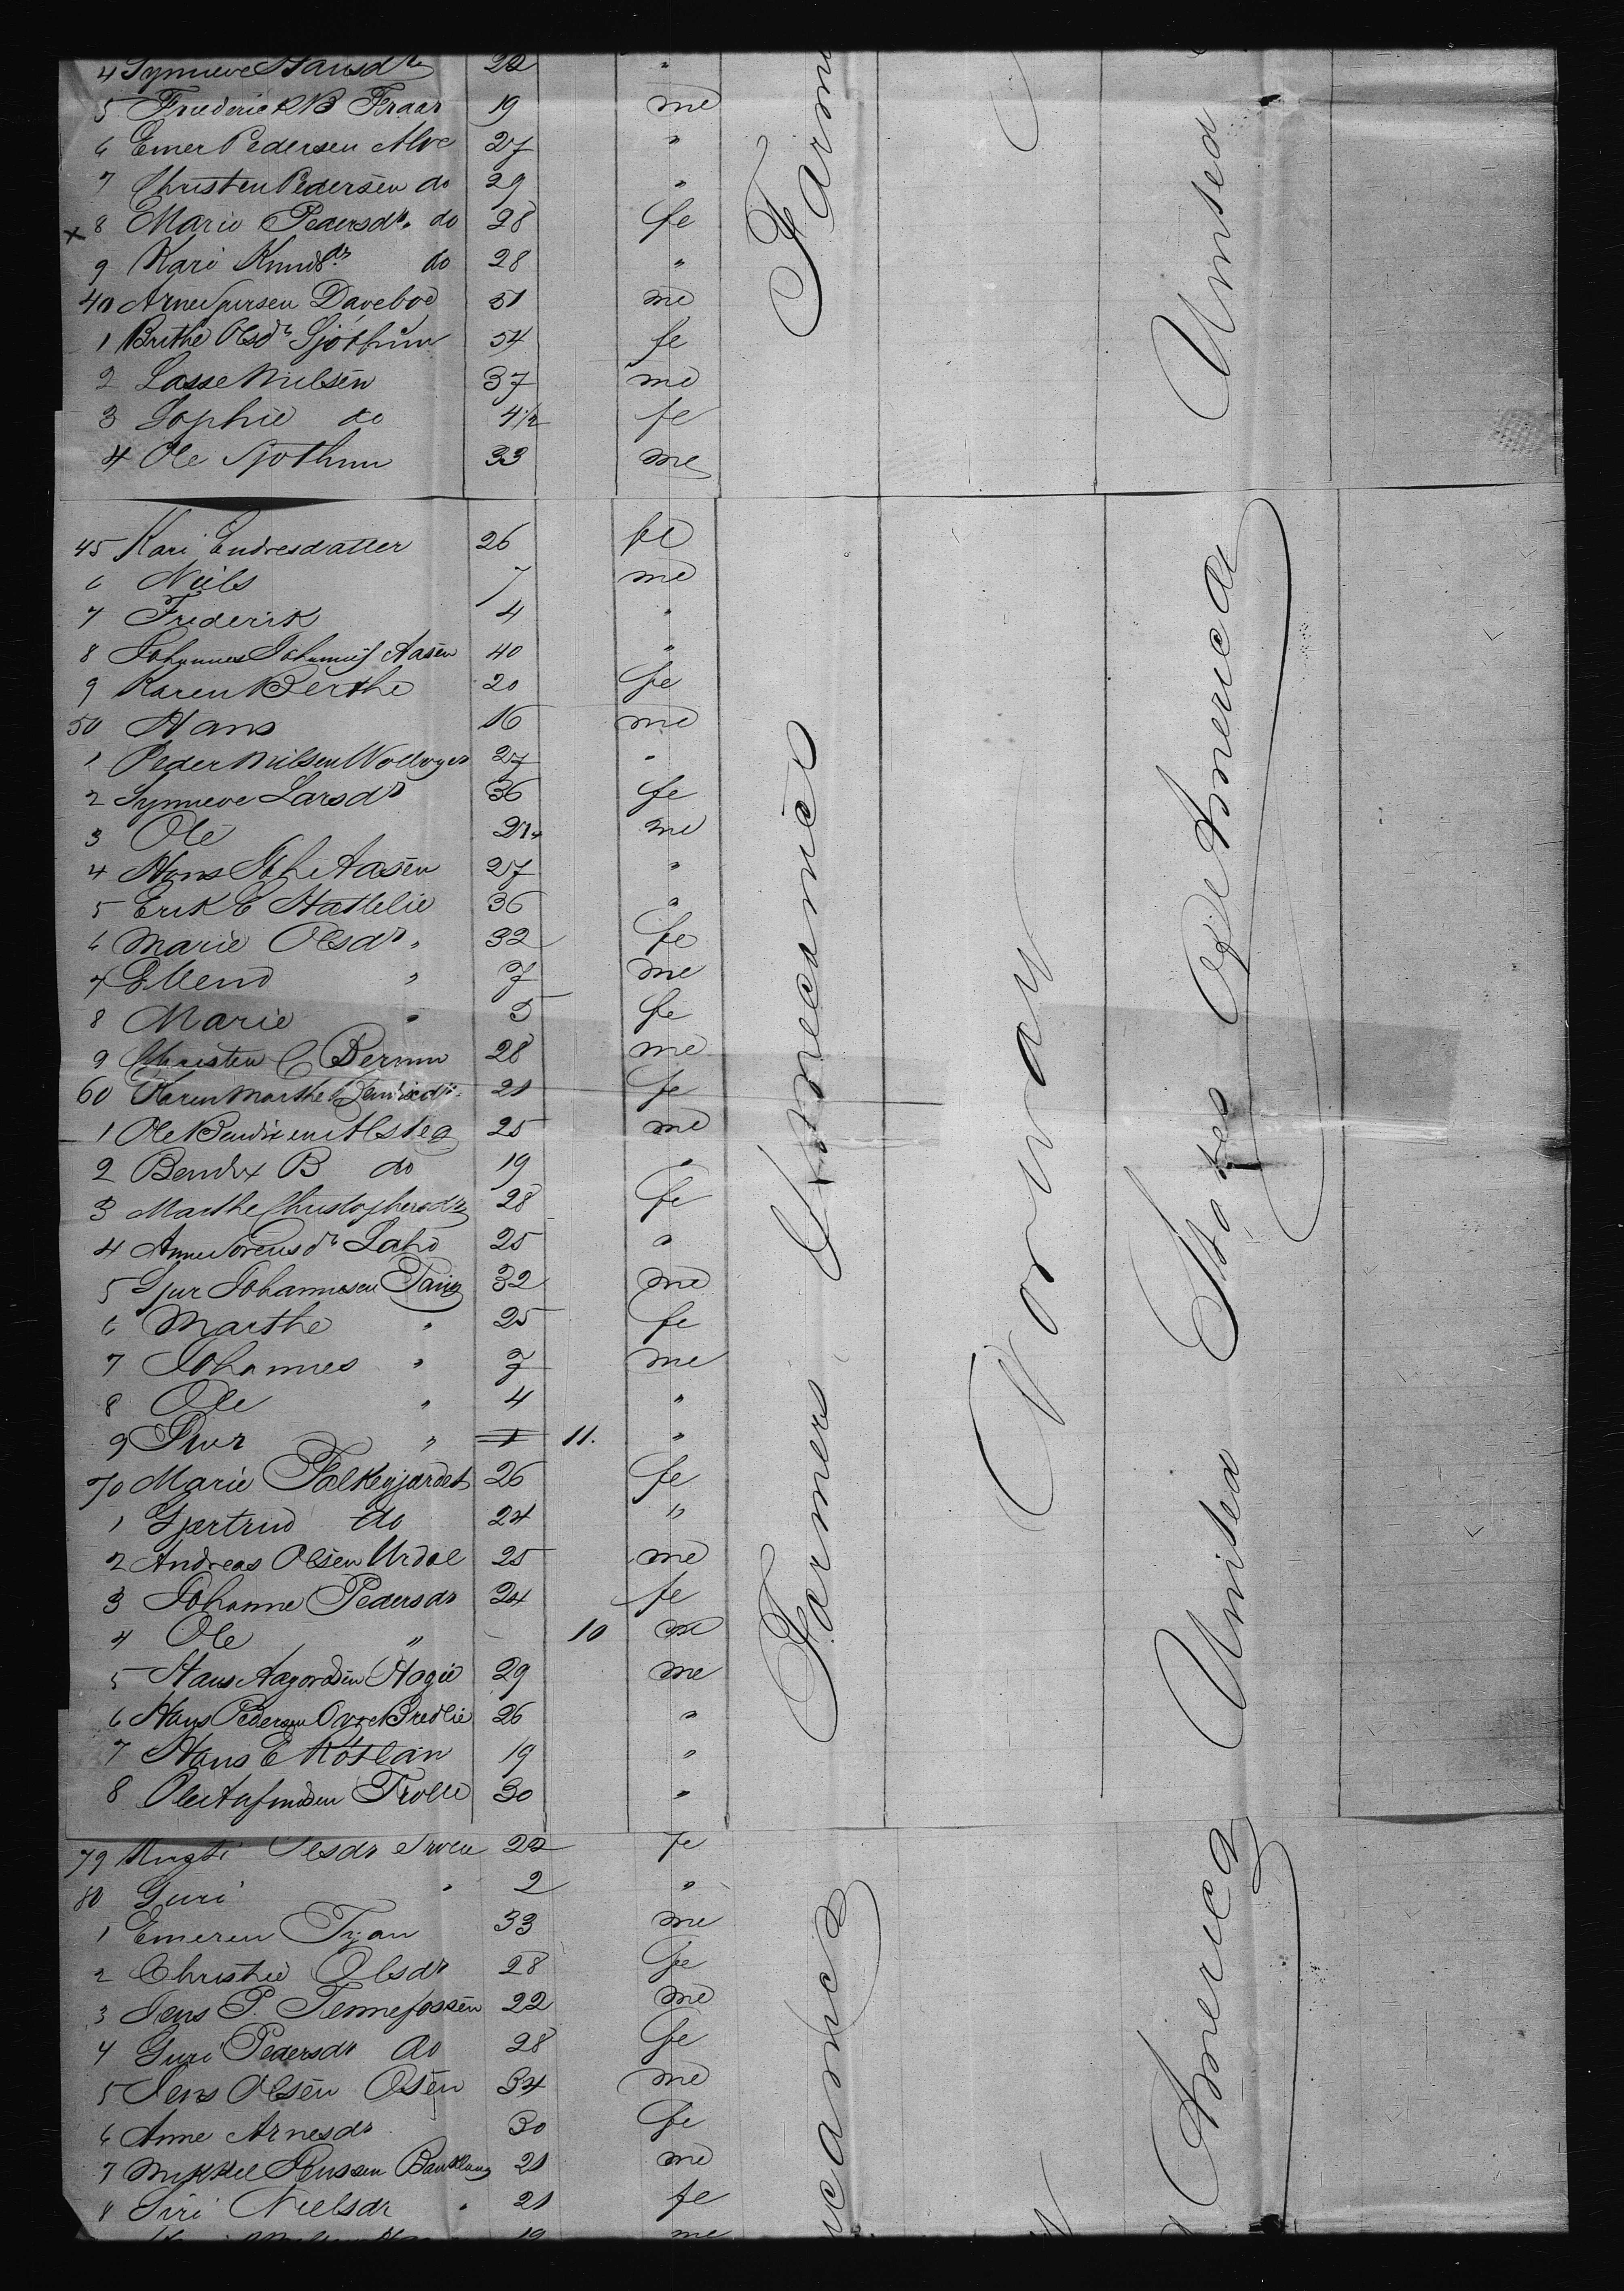 4 Synneve Hansdr 22 "
5 Friederick B Fraas 19 me
6 Emer Pedersen Alve 27 "
7 Christen Pedersen do 29 "
x 8 Marie Pedersdr. do 28 fe
9 Kari Knudsdr do 28 "
40 Arne 51 me
1 Brithe Olsdr Sjothun 54 fe
2 Lasse Nielsen 37 me
3 Sophie do 4 1/2 fe
4 Ole Sjothun 33 me
45 Kari Endresdatter 26 fe
6 Niels 7 me
7 Frederik 4 "
8 Johannes Aasen 40 "
9 Karen Berthe 20 fe
50 Hans 16 me
1 Peder Nielsen 27 "
2 Synneve Larsdr 36 fe
3 Ole me
4 Hans Aasen 27 "
5 Erik E Hatlelie 36 "
6 Marie Olsdr " 32 fe
7 Ellend " 7 me
8 Marie " 5 fe
9 Christen C 28 me
60 Karen Marthe 21 fe
1 Ole 25 me
2 Bendix B do 19 "
3 Marthe Christophersdr 28 fe
4 Anne Sorensdr 25 "
5 Sjur Johannesen 32 me
6 Marthe " 25 fe
7 Johannes " 7 me
8 Ole " 4 "
9 Siur " 1 11. "
70 Marie Falkegjardet 26 fe
1 Gjertrud do 24 "
2 Andreas Olsen Urdal 25 me
3 Johanne Pedersdr 24 fe
4 Ole " 10 me
5 Hans Hagie 29 me
6 Hans Pedersen Ovre Bredlie 26 "
7 Hans E 19 "
8 Ole Trolle 30 "
79 Olsdr 22 fe
80 Guri " 2 "
1 Emeren Tyan 33 me
2 Christie Olsdr 28 fe
3 Jens P. Tennefossen 22 me
4 Guri Pedersdr do 28 fe
5 Jens Olsen Osen 34 me
6 Anne Arnesdr 30 fe
7 Mikkel 21 me
8 Siri Nielsdr " 21 fe
19 me
Farm
United
Farmers & mecanics
Norway
United States Of America
ecanics
America